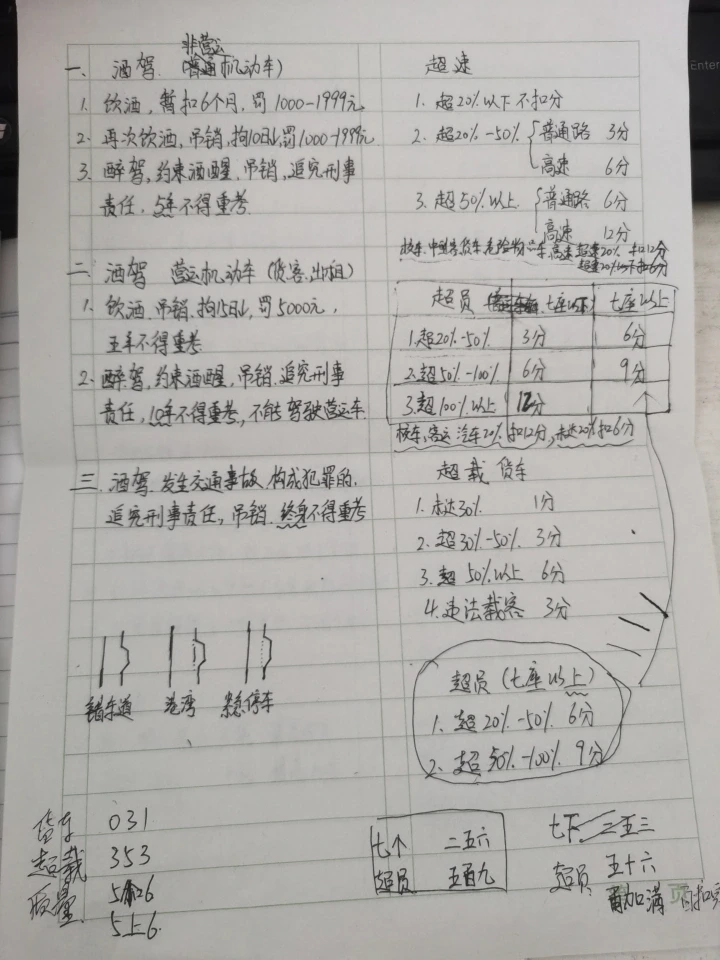 一、酒驾 (普通机动车)
非营运
1. 饮酒, 暂扣6个月, 罚1000-1999元
2. 再次饮酒, 吊销, 拘10日↓, 罚1000-1999元
3. 醉驾, 约束酒醒, 吊销, 追究刑事
责任, 5年不得重考
二、酒驾 营运机动车 (货.客.出租)
1. 饮酒, 吊销, 拘15日↓, 罚5000元,
五年不得重考
2. 醉驾, 约束酒醒, 吊销, 追究刑事
责任, 10年不得重考, 不能驾驶营运车.
三、酒驾.发生交通事故, 构成犯罪的,
追究刑事责任, 吊销, 终身不得重考
错车道 港湾 紧急停车
货车 031
超载 353
质量 5 26
5上6
超速
1. 超20%以下不扣分
2. 超20%-50% { 普通路 3分
高速 6分
3. 超50%以上 { 普通路 6分
高速 12分
校车.中型客货车.危险物汽车.高速 超速20% 扣12分
超速20%以下扣6分
超员 七座以下 七座以上
1. 超20%-50% 3分 6分
2. 超50%-100% 6分 9分
3. 超100%以上 12分
校车.客运汽车20% 扣12分, 未达20%扣6分
超载 货车
1. 未达30% 1分
2. 超30%-50% 3分
3. 超50%以上 6分
4. 违法载客 3分
超员 (七座以上)
1. 超20%-50% 6分
2. 超50%-100% 9分
七个 二五六
超员 五百九
七下 二五三
超员 五十六
百加满
页